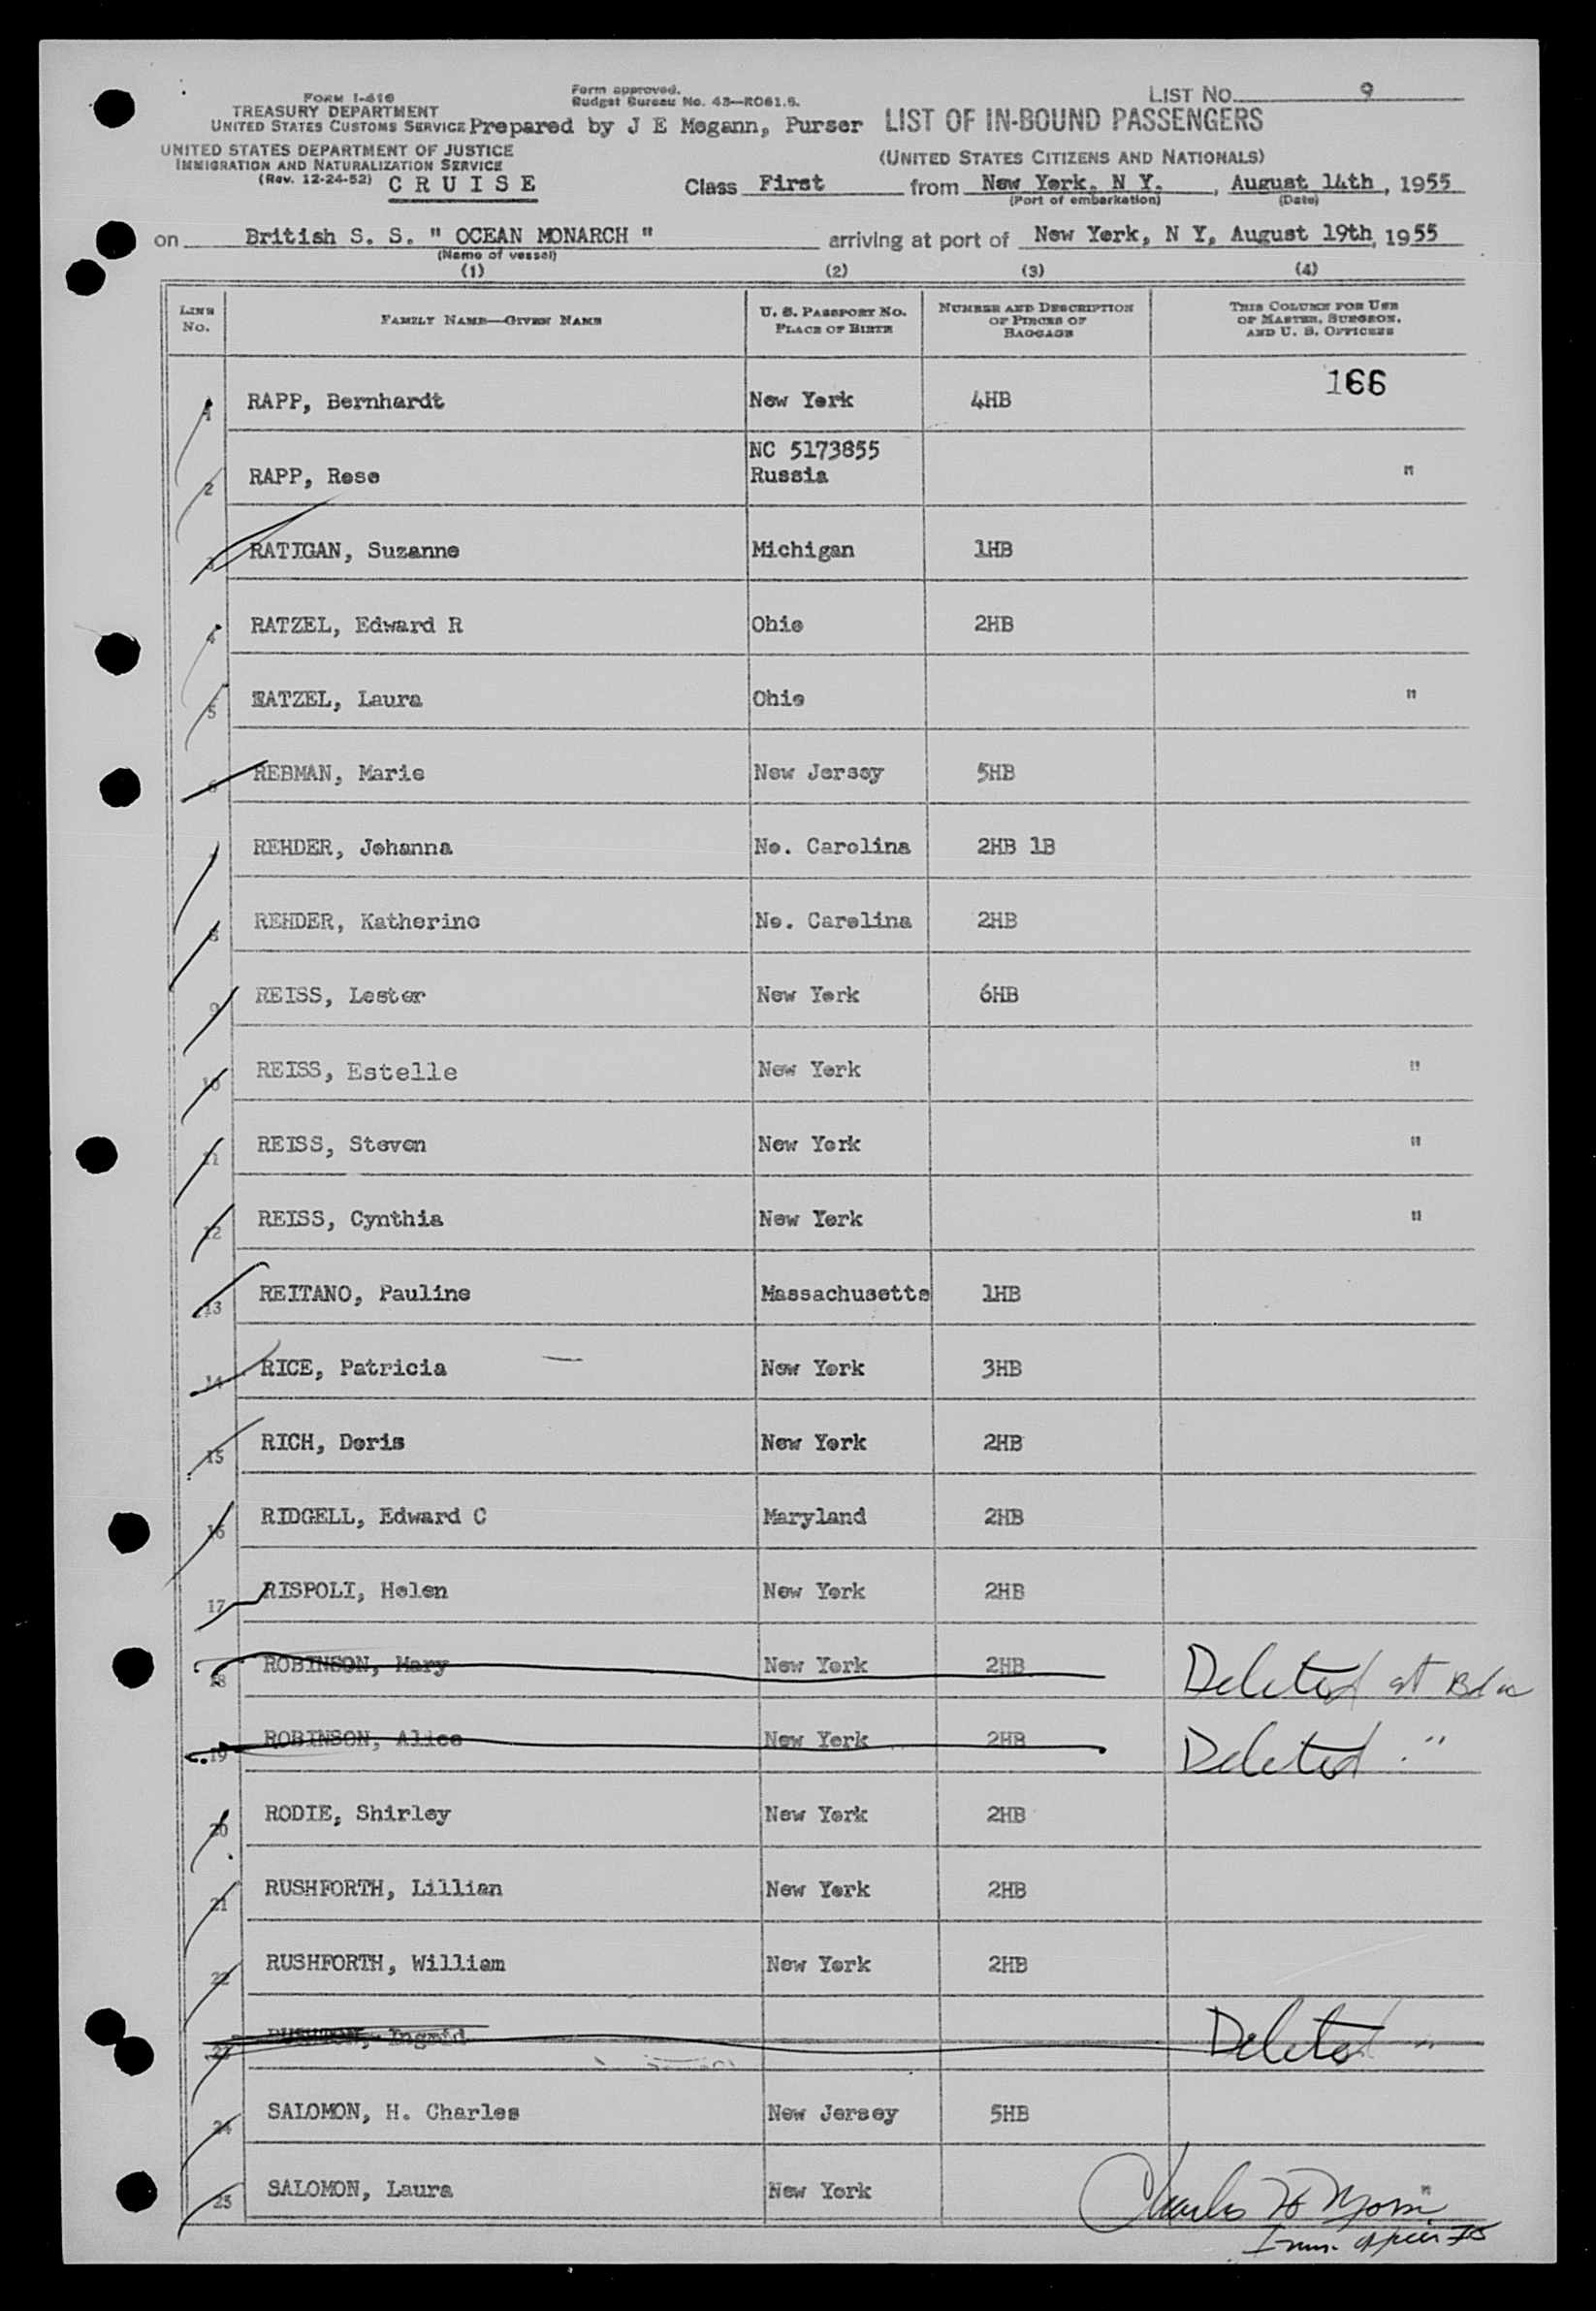 FORM I-416
TREASURY DEPARTMENT
UNITED STATES CUSTOMS SERVICE
UNITED STATES DEPARTMENT OF JUSTICE
IMMIGRATION AND NATURALIZATION SERVICE
(Rev. 12-24-52) CRUISE
Form approved.
Budget Bureau No. 43—R061.5.
Prepared by J E Megann, Purser
LIST NO. 9
LIST OF IN-BOUND PASSENGERS
(UNITED STATES CITIZENS AND NATIONALS)
Class First from New York, N Y, August 14th, 1955
(Port of embarkation) (Date)
on British S. S. " OCEAN MONARCH " arriving at port of New York, N Y, August 19th, 1955
(Name of vessel)
(1) (2) (3) (4)
LINE No. FAMILY NAME—GIVEN NAME U. S. PASSPORT NO. PLACE OF BIRTH NUMBER AND DESCRIPTION OF PIECES OF BAGGAGE THIS COLUMN FOR USE OF MASTER, SURGEON, AND U. S. OFFICERS
166
1 RAPP, Bernhardt New York 4HB
NC 5173855
2 RAPP, Rose Russia "
3 RATIGAN, Suzanne Michigan 1HB
4 RATZEL, Edward R Ohio 2HB
5 RATZEL, Laura Ohio "
6 REBMAN, Marie New Jersey 5HB
7 REHDER, Johanna No. Carolina 2HB 1B
8 REHDER, Katherine No. Carolina 2HB
9 REISS, Lester New York 6HB
10 REISS, Estelle New York "
11 REISS, Steven New York "
12 REISS, Cynthia New York "
13 REITANO, Pauline Massachusetts 1HB
14 RICE, Patricia New York 3HB
15 RICH, Doris New York 2HB
16 RIDGELL, Edward C Maryland 2HB
17 RISPOLI, Helen New York 2HB
18 ROBINSON, Mary New York 2HB Deleted at Bda
19 ROBINSON, Alice New York 2HB Deleted "
20 RODIE, Shirley New York 2HB
21 RUSHFORTH, Lillian New York 2HB
22 RUSHFORTH, William New York 2HB
23 RUSHTON, Ingrid Deleted "
24 SALOMON, H. Charles New Jersey 5HB
25 SALOMON, Laura New York "
Charles H
Imm.